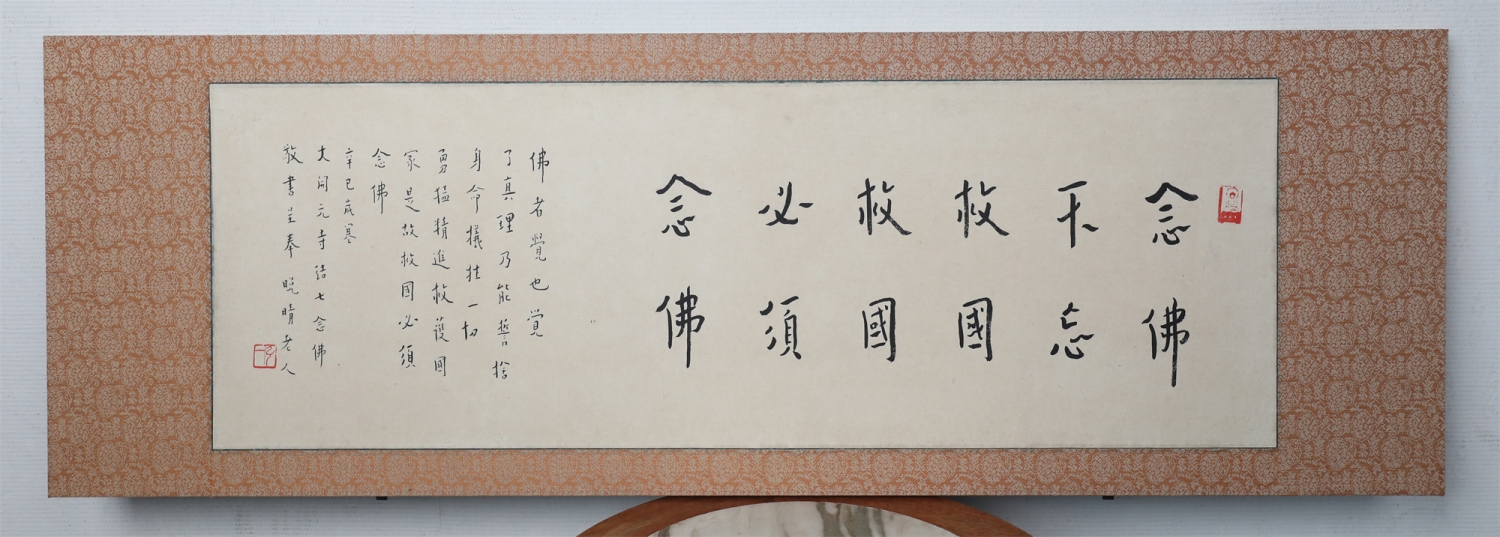 念佛
不忘
救國
救國
必須
念佛
佛者覺也覺
了真理乃能誓捨
身命犧牲一切
勇猛精進救護國
家是故救國必須
念佛
辛巳歲寒
大開元寺結七念佛
敬書呈奉 晚晴老人